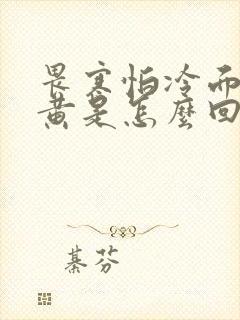 畏寒怕冷而
黄是怎麼回
綦芬